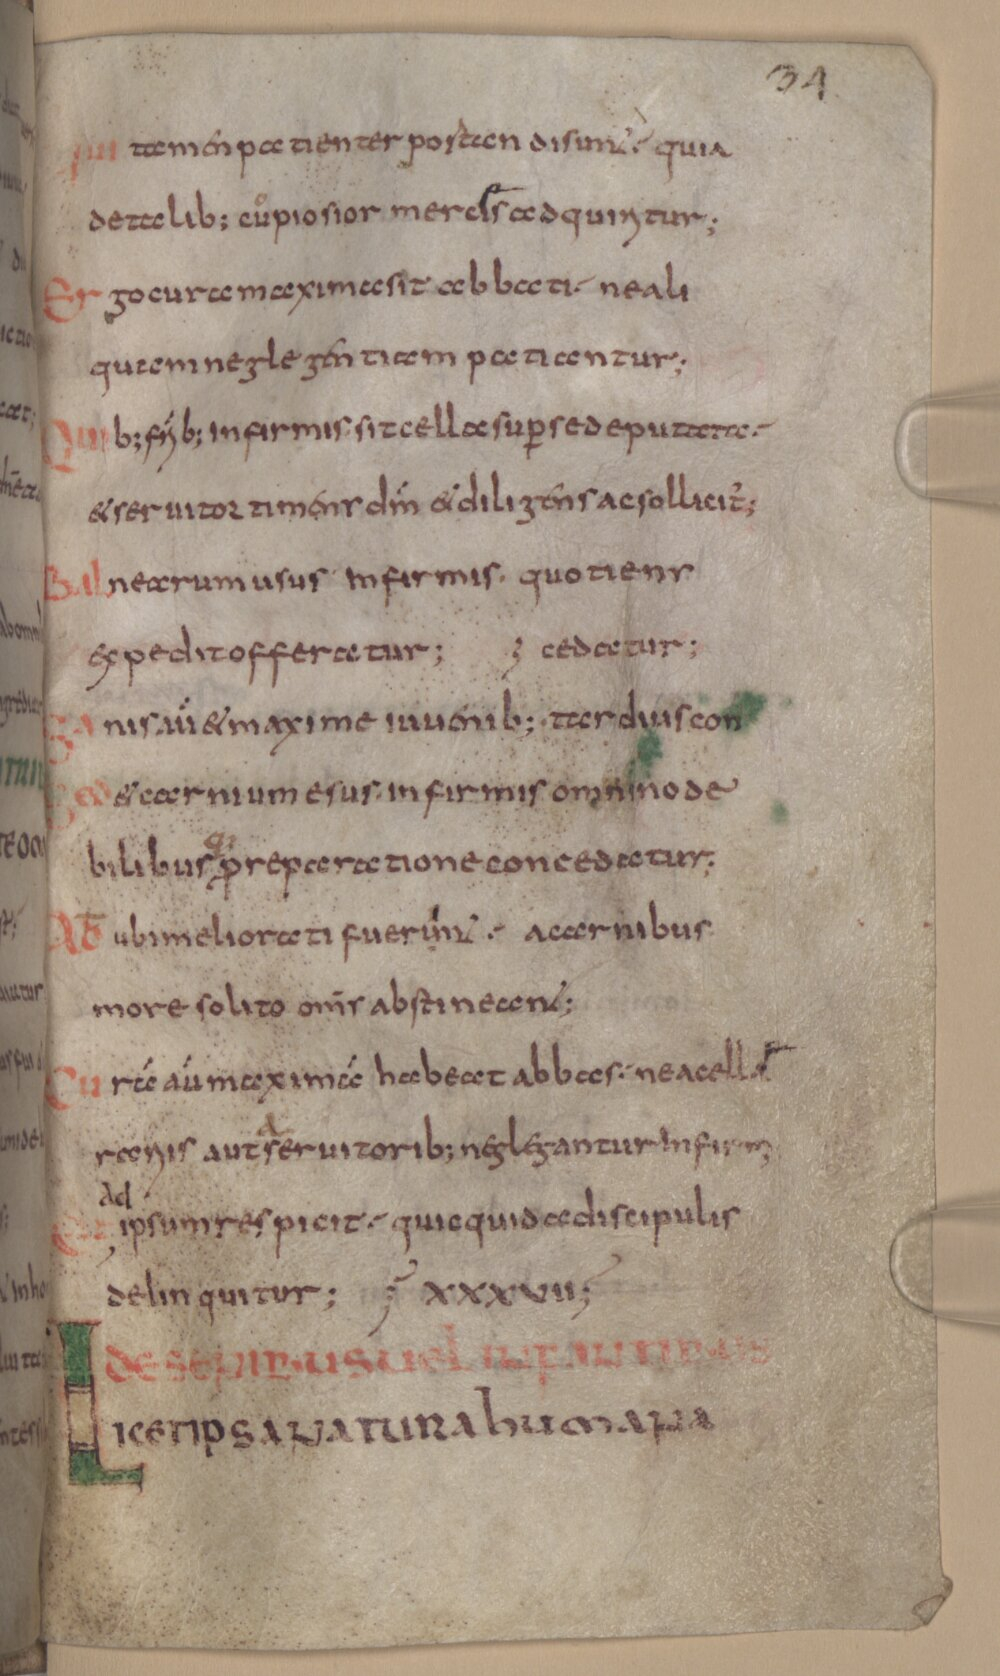 34
Qui tamen patienter portandi sunt quia
de talib; cupiosior mercis adquiritur;
Ergo cura maxima sit abbati ne ali
quam neglegentiam patiantur;
Quib; frīb; infirmis sit cella sup se deputata
& servitor timens dm̄ & diligens ac sollicit';
Balnearum usus infirmis quotiens
expedit offeratur; cedatur;
Sanis aū & maxime iuuenib; tardius con
Sed & carnium esus infirmis omnino de
bilibus q; p reparatione concedatur;
At ubi meliorati fuerunt a carnibus
more solito om̄s abstineant;
Curā aū maximā habeat abbas ne a cella
rariis aut a seruitorib; neglegantur infirmi
Et ad ipsum respicit quicquid a discipulis
delinquitur; xxxvii;
de senibus uel infantibus
Licet ipsa natura humana